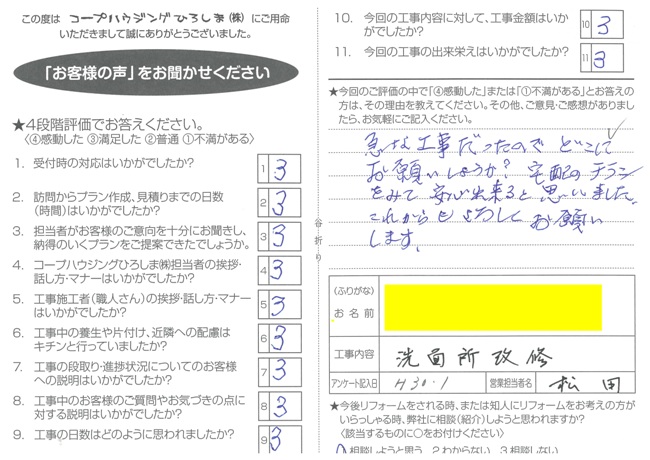 この度は コープハウジングひろしま(株) にご用命
いただきまして誠にありがとうございました。
「お客様の声」をお聞かせください
★4段階評価でお答えください。
〈④感動した ③満足した ②普通 ①不満がある〉
1. 受付時の対応はいかがでしたか?
1 3
2. 訪問からプラン作成、見積りまでの日数
(時間)はいかがでしたか?
2 3
3. 担当者がお客様のご意向を十分にお聞きし、
納得のいくプランをご提案できたでしょうか。
3 3
4. コープハウジングひろしま㈱担当者の挨拶・
話し方・マナーはいかがでしたか?
4 3
5. 工事施工者(職人さん)の挨拶・話し方・マナー
はいかがでしたか?
5 3
6. 工事中の養生や片付け、近隣への配慮は
キチンと行っていましたか?
6 3
7. 工事の段取り・進捗状況についてのお客様
への説明はいかがでしたか?
7 3
8. 工事中のお客様のご質問やお気づきの点に
対する説明はいかがでしたか?
8 3
9. 工事の日数はどのように思われましたか?
9 3
谷折り
10. 今回の工事内容に対して、工事金額はいか
がでしたか?
10 3
11. 今回の工事の出来栄えはいかがでしたか?
11 3
★今回のご評価の中で「④感動した」または「①不満がある」とお答えの
方は、その理由を教えてください。その他、ご意見・ご感想がありまし
たら、お気軽にご記入ください。
急な工事だったので どこに
お願いしようか? 宅配のチラシ
をみて 安心出来ると思いました
これからもよろしくお願い
します。
(ふりがな)
お名前
工事内容 洗面所改修
アンケート記入日 H30.1 営業担当者名 松田
★今後リフォームをされる時、または知人にリフォームをお考えの方が
いらっしゃる時、弊社に相談(紹介)しようと思われますか?
〈該当するものに○をお付けください〉
1 相談しようと思う 2 わからない 3 相談しない